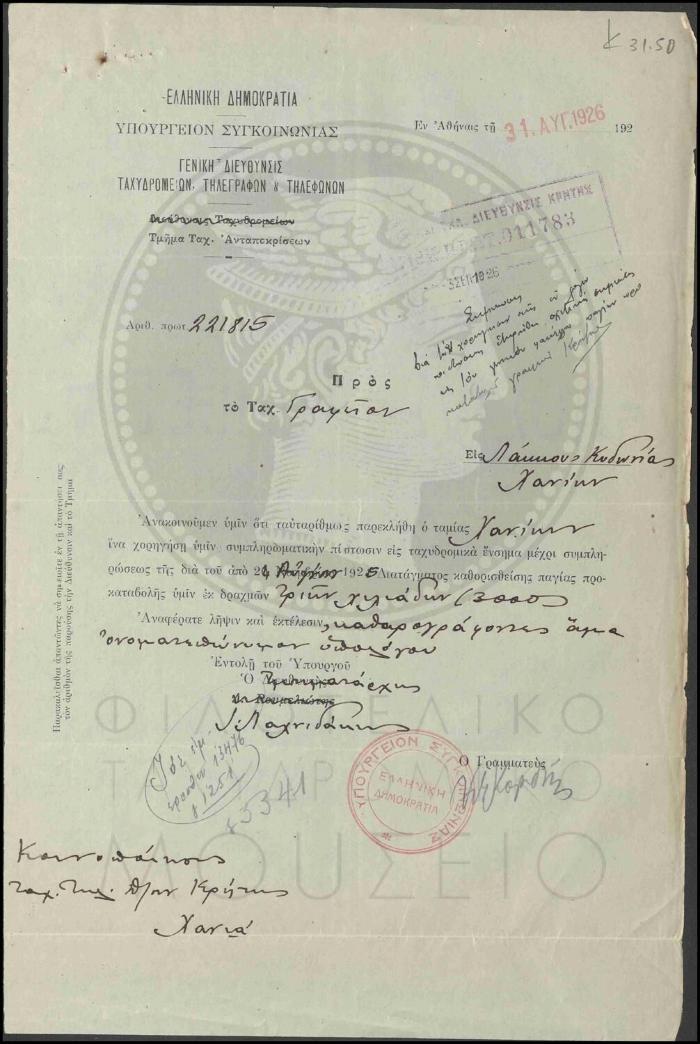 31.50
ΕΛΛΗΝΙΚΗ ΔΗΜΟΚΡΑΤΙΑ
ΥΠΟΥΡΓΕΙΟΝ ΣΥΓΚΟΙΝΩΝΙΑΣ
Ἐν Ἀθήναις τῇ 31. ΑΥΓ. 1926 192
ΓΕΝΙΚΗ ΔΙΕΥΘΥΝΣΙΣ
ΤΑΧΥΔΡΟΜΕΙΩΝ, ΤΗΛΕΓΡΑΦΩΝ & ΤΗΛΕΦΩΝΩΝ
Διεύθυνσις Ταχυδρομείων
Τμῆμα Ταχ. Ἀνταποκρίσεων
ΔΙΕΥΘΥΝΣΙΣ ΚΡΗΤΗΣ
011783
3 ΣΕΠ 1926
Ἀριθ. πρωτ. 221815
Πρὸς
τὸ Ταχ. Γραφεῖον
Εἰς Λάκκους Κυδωνίας
Χανίων
Ἀνακοινοῦμεν ὑμῖν ὅτι ταὐταρίθμως παρεκλήθη ὁ ταμίας Χανίων
ἵνα χορηγήσῃ ὑμῖν συμπληρωματικὴν πίστωσιν εἰς ταχυδρομικὰ ἔνσημα μέχρι συμπλη-
ρώσεως τῆς διὰ τοῦ ἀπὸ 2 1925 Διατάγματος καθορισθείσης παγίας προ-
καταβολῆς ὑμῖν ἐκ δραχμῶν τριῶν χιλιάδων (3000)
Ἀναφέρατε λῆψιν καὶ ἐκτέλεσιν, καθαρογράφοντες ἅμα
ὀνοματεπώνυμον ὑπολόγου
Ἐντολῇ τοῦ Ὑπουργοῦ
Ὁ Τμηματάρχης
Ι. Λαχνιδάκης
Ὁ Γραμματεὺς
ΥΠΟΥΡΓΕΙΟΝ ΣΥΓΚΟΙΝΩΝΙΑΣ
ΕΛΛΗΝΙΚΗ
ΔΗΜΟΚΡΑΤΙΑ
13476
1251
85341
Κοινοποίησις
ταχ. Τηλ. Δ/σιν Κρήτης
Χανιά
Παρακαλεῖσθε ἀπαντῶντες νὰ σημειῶτε ἐν τῇ ἀπαντήσει σας
τὸν ἀριθμὸν τῆς παρούσης τὴν Διεύθυνσιν καὶ τὸ Τμῆμα
ΦΙΛΟΤΕΛΙΚΟ
ΤΑΧΥΔΡΟΜΙΚΟ
ΜΟΥΣΕΙΟ